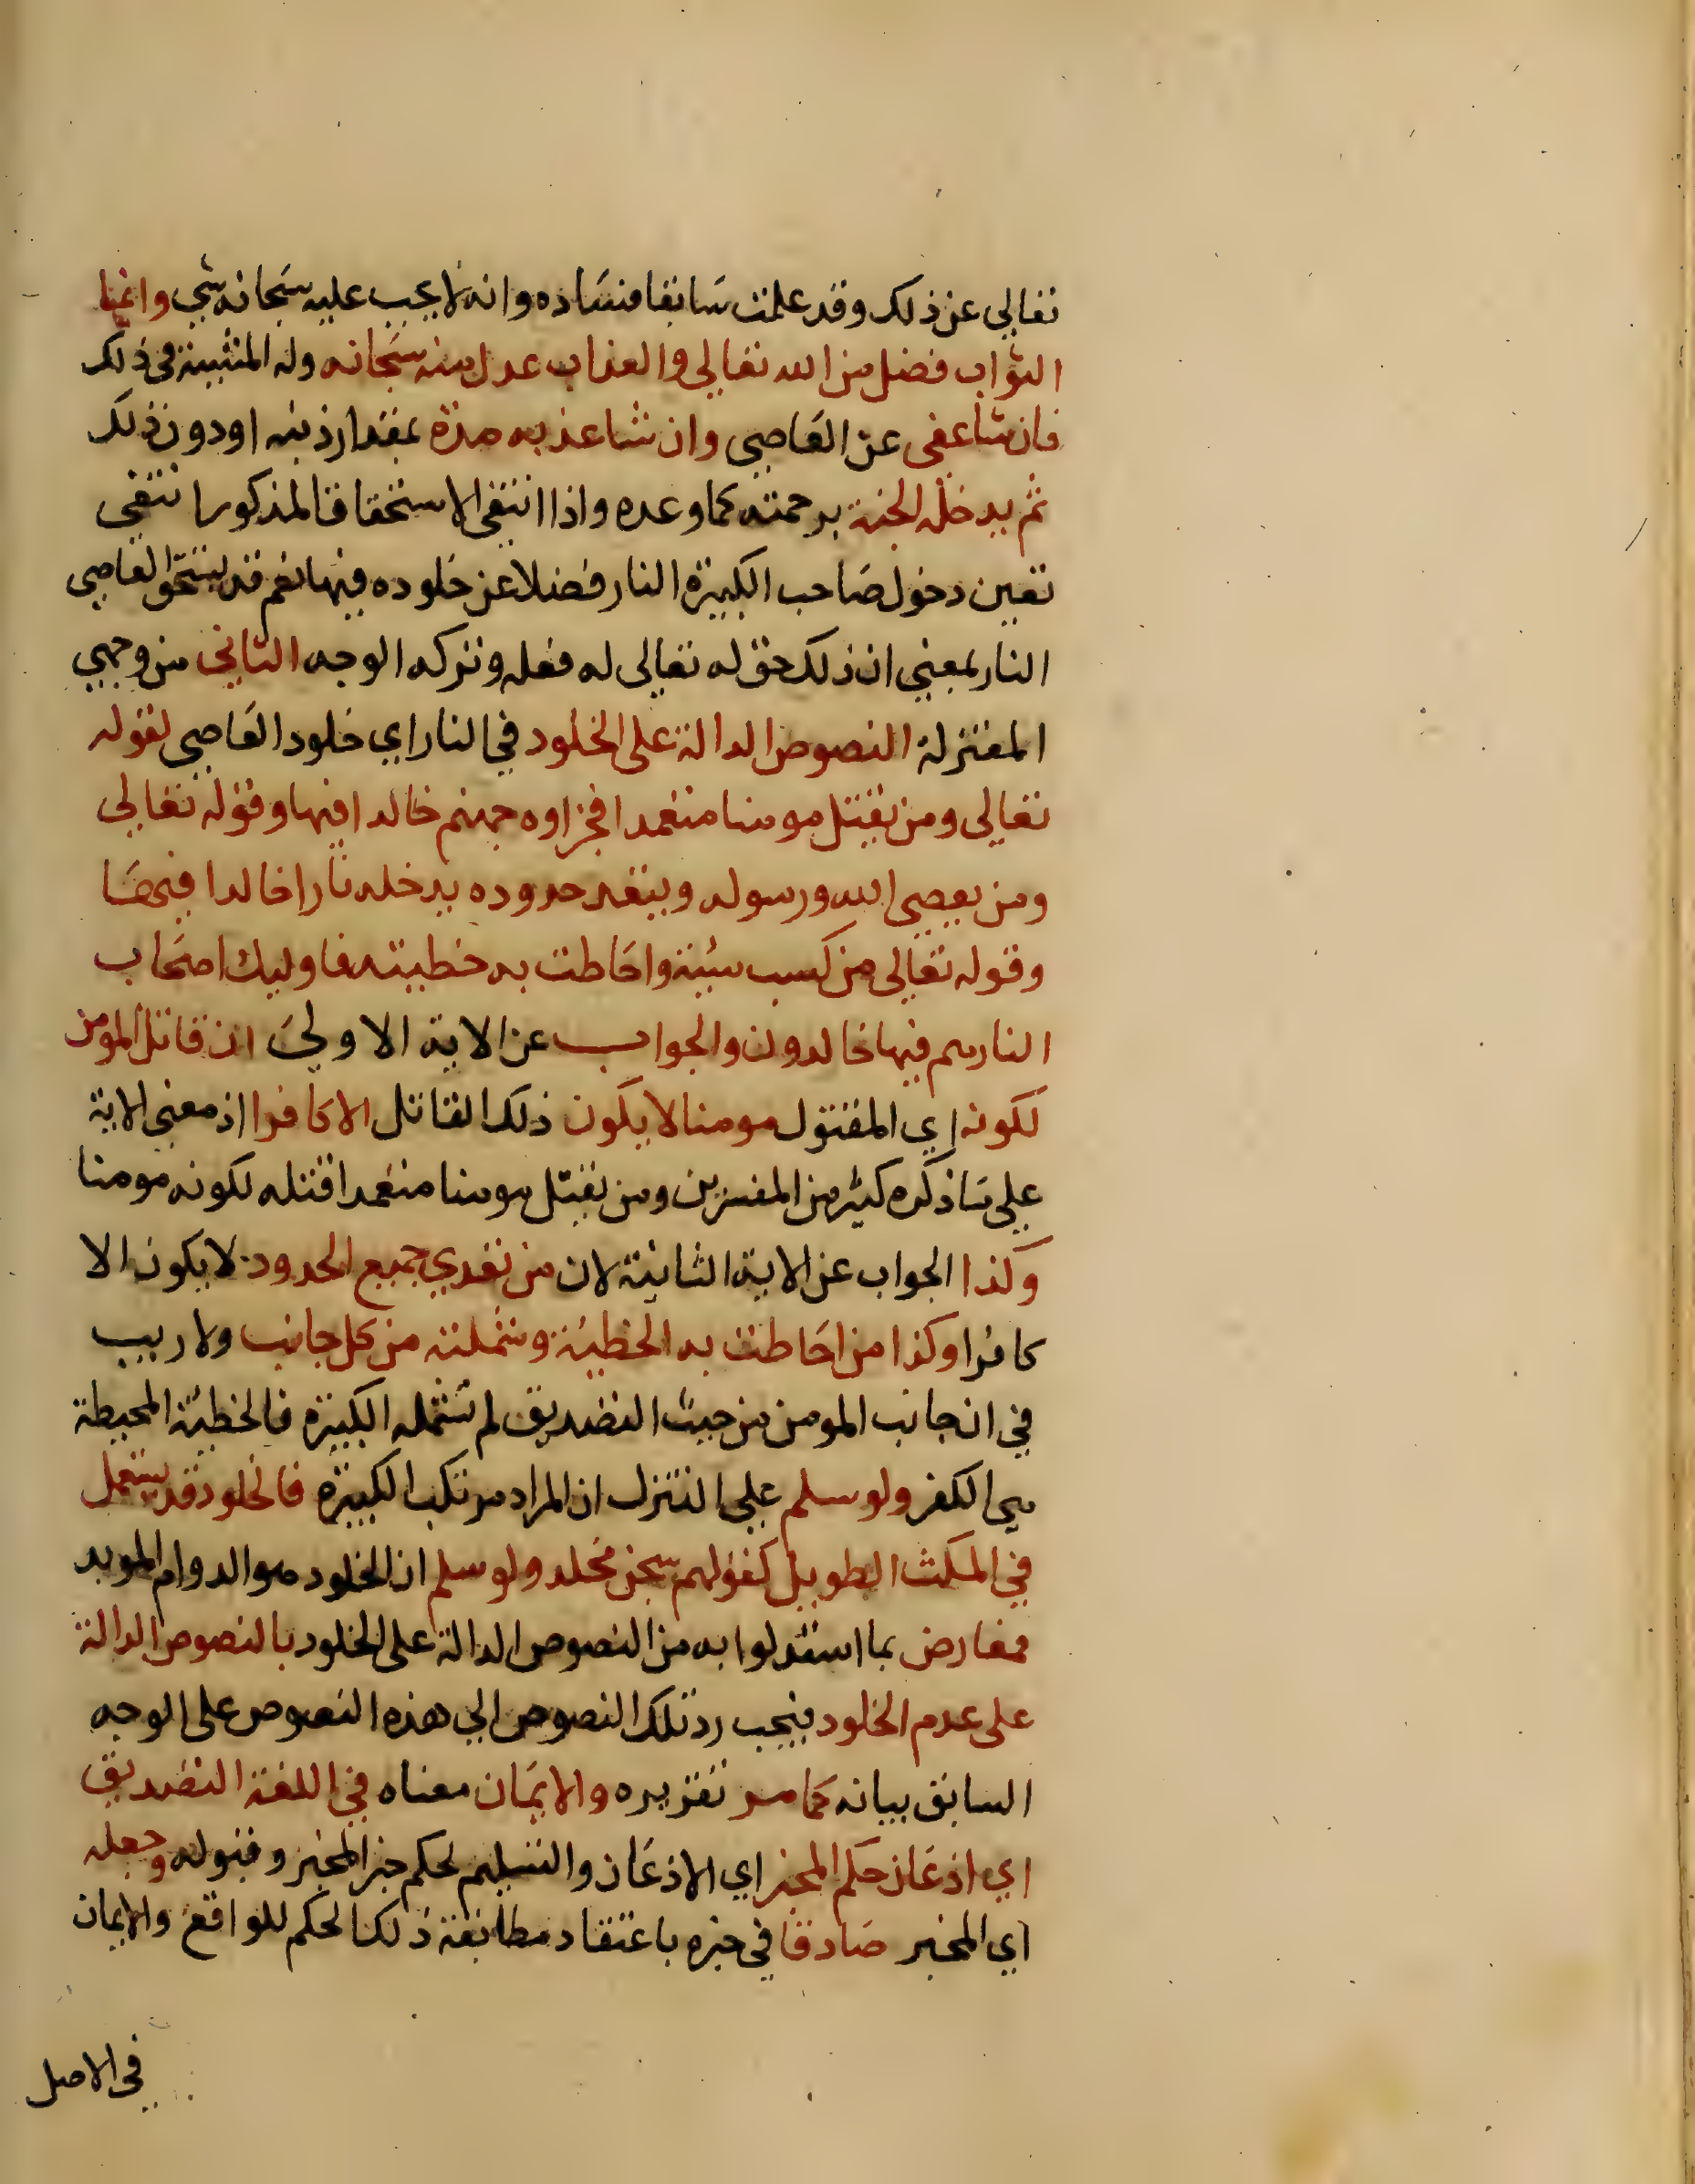 تعالي عن ذلك وقد علمت سابقا فساده وانه لا يجب عليه سبحانه شي وانما
الثواب فضل من الله تعالي والعذاب عدل منه سبحانه وله المشيئة في ذلك
فان شا عفى عن العاصي وان شا عذبه مدة بمقدار ذنبه او دون ذلك
ثم يدخله الجنة برحمته كما وعده واذا انتفى الاستحقاق المذكور انتفي
تعين دخول صاحب الكبيرة النار فضلا عن خلوده فيها نعم قد يستحق العاصي
النار بمعني ان ذلك حق له تعالى له فعله وتركه الوجه الثاني من وجهي
المعتزلة النصوص الدالة على الخلود في النار اي خلود العاصي لقوله
تعالي ومن يقتل مومنا متعمدا فجزاوه جهنم خالدا فيها وقوله تعالي
ومن يعصي الله ورسوله ويتعد حدوده يدخله نارا خالدا فيها
وقوله تعالى من كسب سيئة واحاطت به خطيته فاوليك اصحاب
النار هم فيها خالدون والجواب عن الاية الاولي ان قاتل المومن
لكونه اي المقتول مومنا لا يكون ذلك القاتل الا كافرا اذ معني الاية
علي ما ذكره كثير من المفسرين ومن يقتل مومنا متعمدا قتله لكونه مومنا
وكذا الجواب عن الاية الثانية لان من تعدي جميع الحدود لا يكون الا
كافرا وكذا من احاطت به الخطيئة وشملته من كل جانب ولا ريب
في ان جانب المومن من حيث التصديق لم تشمله الكبيرة فالخطيئة المحيطة
هي الكفر ولو سلم علي التنزل ان المراد مرتكب الكبيرة فالخلود قد يستعمل
في المكث الطويل كقولهم سجن مخلد ولو سلم ان الخلود هو الدوام الموبد
فمعارض بما استدلوا به من النصوص الدالة على الخلود بالنصوص الدالة
على عدم الخلود فيجب رد تلك النصوص الي هذه النصوص على الوجه
السابق بيانه كما مر تقريره والايمان معناه في اللغة التصديق
اي اذعان حكم المخبر اي الاذعان والتسليم لحكم خبر المخبر وقبوله وجعله
اي المخبر صادقا في خبره باعتقاد مطابقة ذلك الحكم للواقع والايمان
في الاصل